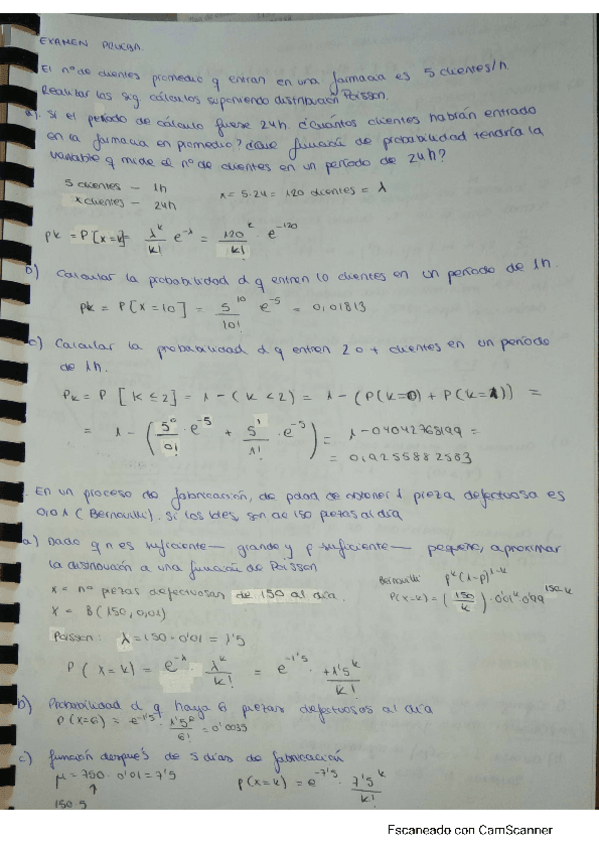 EXAMEN PRUEBA
El nº de clientes promedio q entran en una farmacia es 5 clientes/h.
Realizar los sig. cálculos suponiendo distribución Poisson.
a). Si el período de cálculo fuese 24h. ¿cuántos clientes habrán entrado
en la farmacia en promedio? ¿Que función de probabilidad tendría la
variable q mide el nº de clientes en un período de 24h?
5 clientes — 1h
x clientes — 24h
x = 5·24 = 120 clientes = λ
pk = P[x=k] = λ^k/k! e^-λ = 120^k/k! · e^-120
b) Calcular la probabilidad d q entren 10 clientes en un período de 1h.
pk = P[x=10] = 5^10/10! e^-5 = 0,01813
c) Calcular la probabilidad d q entren 2 o + clientes en un período
de 1h.
Pk = P [k ≤ 2] = 1 - (k < 2) = 1 - (P(k=0) + P(k=1)) =
= 1 - (5^0/0! · e^-5 + 5^1/1! · e^-5) = 1 - 0'4042768199 =
= 0,9255882583
En un proceso de fabricación, de pdad de obtener 1 pieza defectuosa es
0,01 (Bernouilli). Si los lotes, son de 150 piezas al día
a) Dado q n es suficiente— grande y p suficiente— pequeño, aproximar
la distribución a una función de Poisson
Bernouilli p^k (1-p)^1-k
x = nº piezas defectuosas de 150 al día.
P(x=k) = (150/k) · 0'01^k 0'99^150-k
X = B(150, 0,01)
Poisson: λ = 150 · 0'01 = 1'5
P(x=k) = e^-λ · λ^k/k! = e^-1'5 · +1'5^k/k!
b) Probabilidad d q haya 6 piezas defectuosos al día
P(x=6) = e^-1'5 · 1'5^6/6! = 0'0035
c) función después de 5 días de fabricación
μ = 750 · 0'01 = 7'5
P(x=k) = e^-7'5 · 7'5^k/k!
150·5
Escaneado con CamScanner